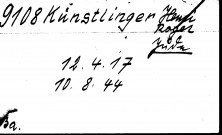 9108 Künstlinger Henri
Rafer
Jude
12.4.17
10.8.44
Ba.